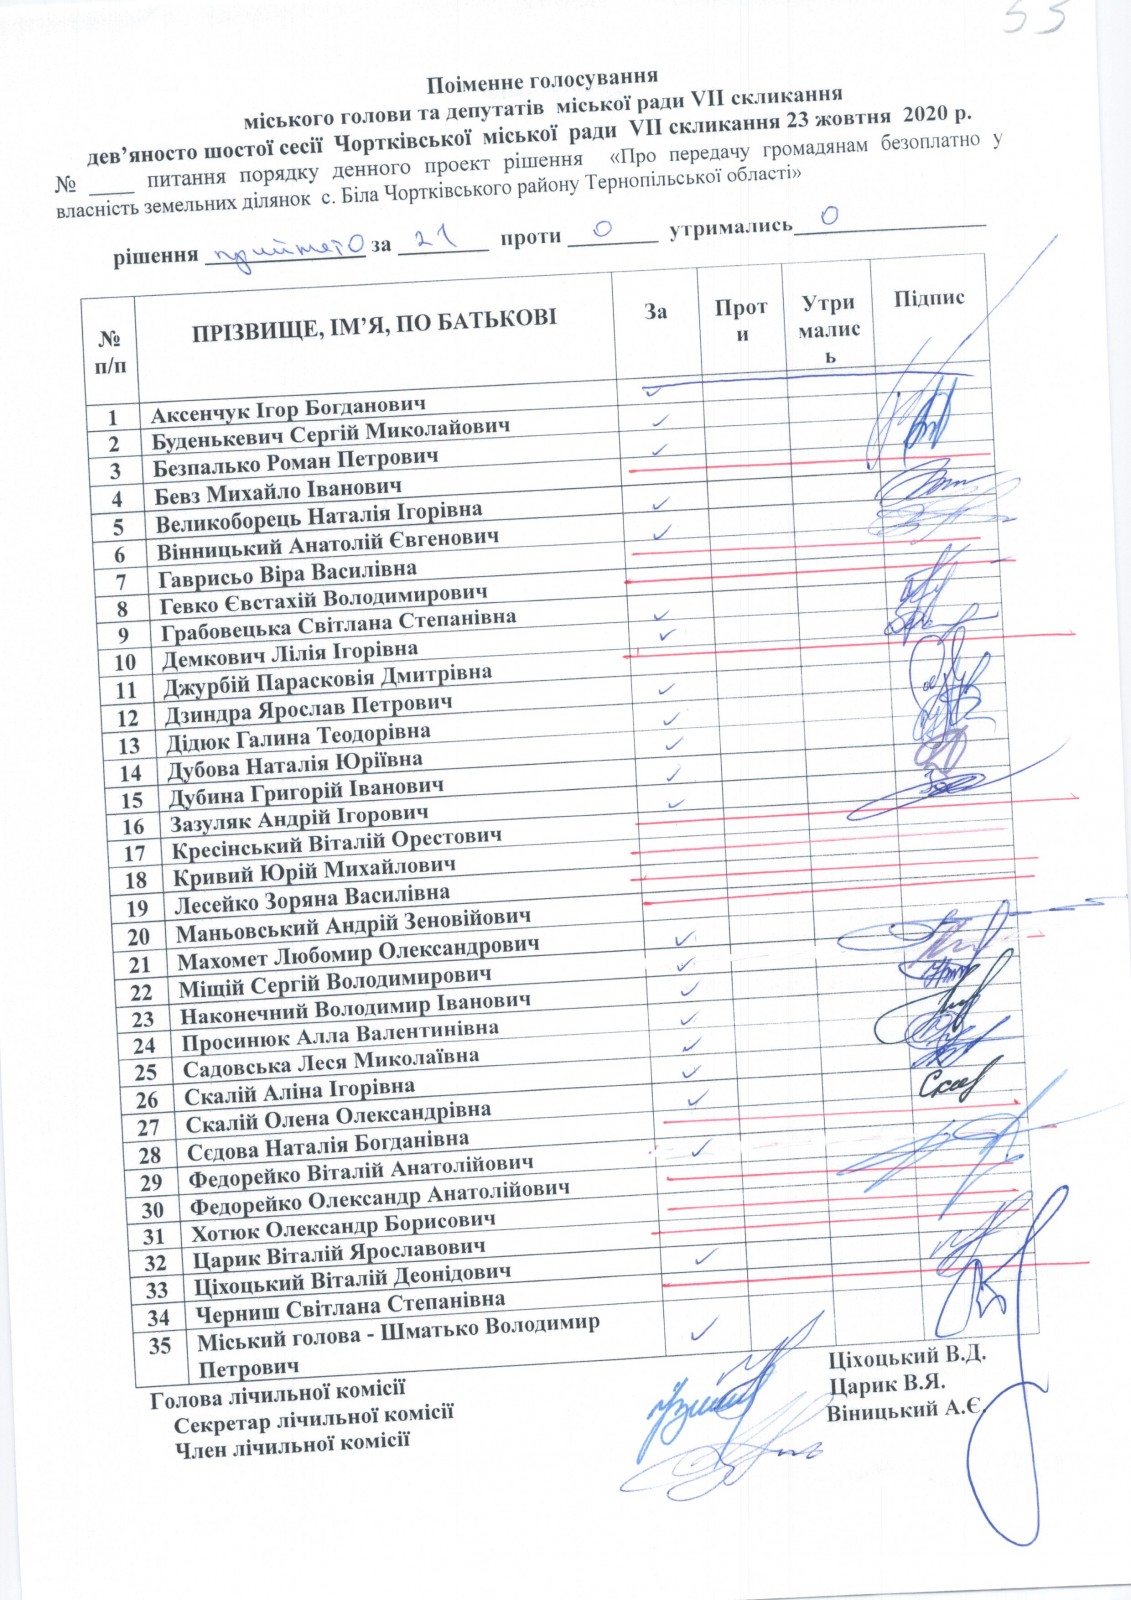 53
Поіменне голосування
міського голови та депутатів міської ради VII скликання
дев’яносто шостої сесії Чортківської міської ради VII скликання 23 жовтня 2020 р.
№ ____ питання порядку денного проект рішення «Про передачу громадянам безоплатно у
власність земельних ділянок с. Біла Чортківського району Тернопільської області»
рішення прийнято за 21 проти 0 утримались 0
№ п/п ПРІЗВИЩЕ, ІМ’Я, ПО БАТЬКОВІ За Проти Утрималось Підпис
1 Аксенчук Ігор Богданович
2 Буденькевич Сергій Миколайович
3 Безпалько Роман Петрович
4 Бевз Михайло Іванович
5 Великоборець Наталія Ігорівна
6 Вінницький Анатолій Євгенович
7 Гаврисьо Віра Василівна
8 Гевко Євстахій Володимирович
9 Грабовецька Світлана Степанівна
10 Демкович Лілія Ігорівна
11 Джурбій Парасковія Дмитрівна
12 Дзиндра Ярослав Петрович
13 Дідюк Галина Теодорівна
14 Дубова Наталія Юріївна
15 Дубина Григорій Іванович
16 Зазуляк Андрій Ігорович
17 Кресінський Віталій Орестович
18 Кривий Юрій Михайлович
19 Лесейко Зоряна Василівна
20 Маньовський Андрій Зеновійович
21 Махомет Любомир Олександрович
22 Міщій Сергій Володимирович
23 Наконечний Володимир Іванович
24 Просинюк Алла Валентинівна
25 Садовська Леся Миколаївна
26 Скалій Аліна Ігорівна
27 Скалій Олена Олександрівна
28 Сєдова Наталія Богданівна
29 Федорейко Віталій Анатолійович
30 Федорейко Олександр Анатолійович
31 Хотюк Олександр Борисович
32 Царик Віталій Ярославович
33 Ціхоцький Віталій Деонідович
34 Черниш Світлана Степанівна
35 Міський голова - Шматько Володимир
Петрович
Голова лічильної комісії Ціхоцький В.Д.
Секретар лічильної комісії Царик В.Я.
Член лічильної комісії Віницький А.Є.